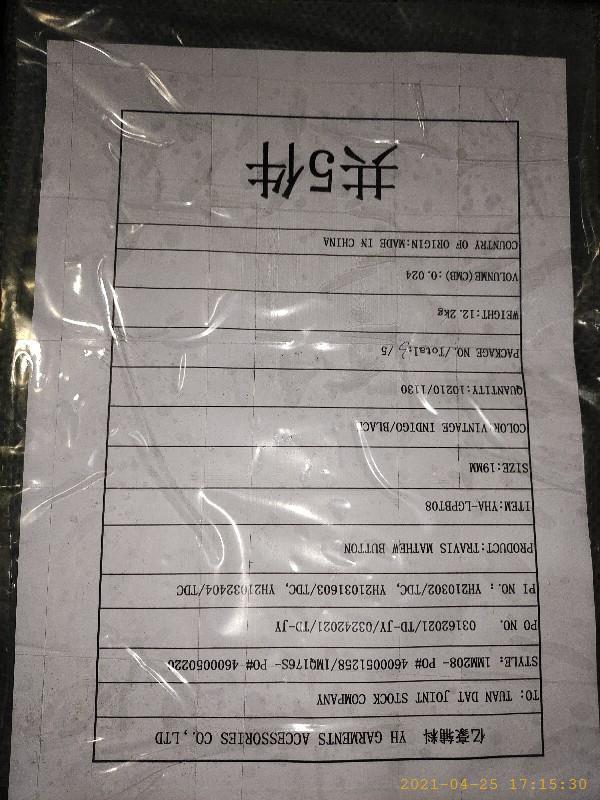 亿豪辅料 YH GARMENTS ACCESSORIES CO.,LTD
TO: TUAN DAT JOINT STOCK COMPANY
STYLE: 1MM208- PO# 4600051258/1MQ176S- PO# 4600050220
PO NO. 03162021/TD-JY/03242021/TD-JY
PI NO.: YH210302/TDC, YH21031603/TDC, YH21032404/TDC
PRODUCT:TRAVIS MATHEW BUTTON
ITEM:YHA-LGPBT08
SIZE:19MM
COLOR:VINTAGE INDIGO/BLACK
QUANTITY:10210/1130
PACKAGE NO./Total:3/5
WEIGHT:12.2kg
VOLUNME(CMB):0.024
COUNTRY OF ORIGIN:MADE IN CHINA
共5件
2021-04-25 17:15:30